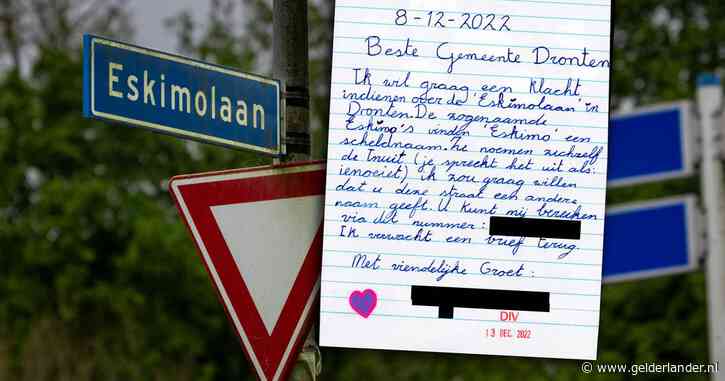 Eskimolaan
8-12-2022
Beste Gemeente Dronten
Ik wil graag een klacht
indienen over de 'Eskimolaan' in
Dronten. De zogenaamde
Eskimo's vinden 'Eskimo' een
scheldnaam. Ze noemen zichzelf
de Inuit (je spreekt het uit als:
ienoeiet) ik zou graag willen
dat u deze straat een andere
naam geeft. U kunt mij bereiken
via dit nummer:
Ik verwacht een brief terug.
Met viendelijke Groet:
DIV
13 DEC. 2022
www.gelderlander.nl